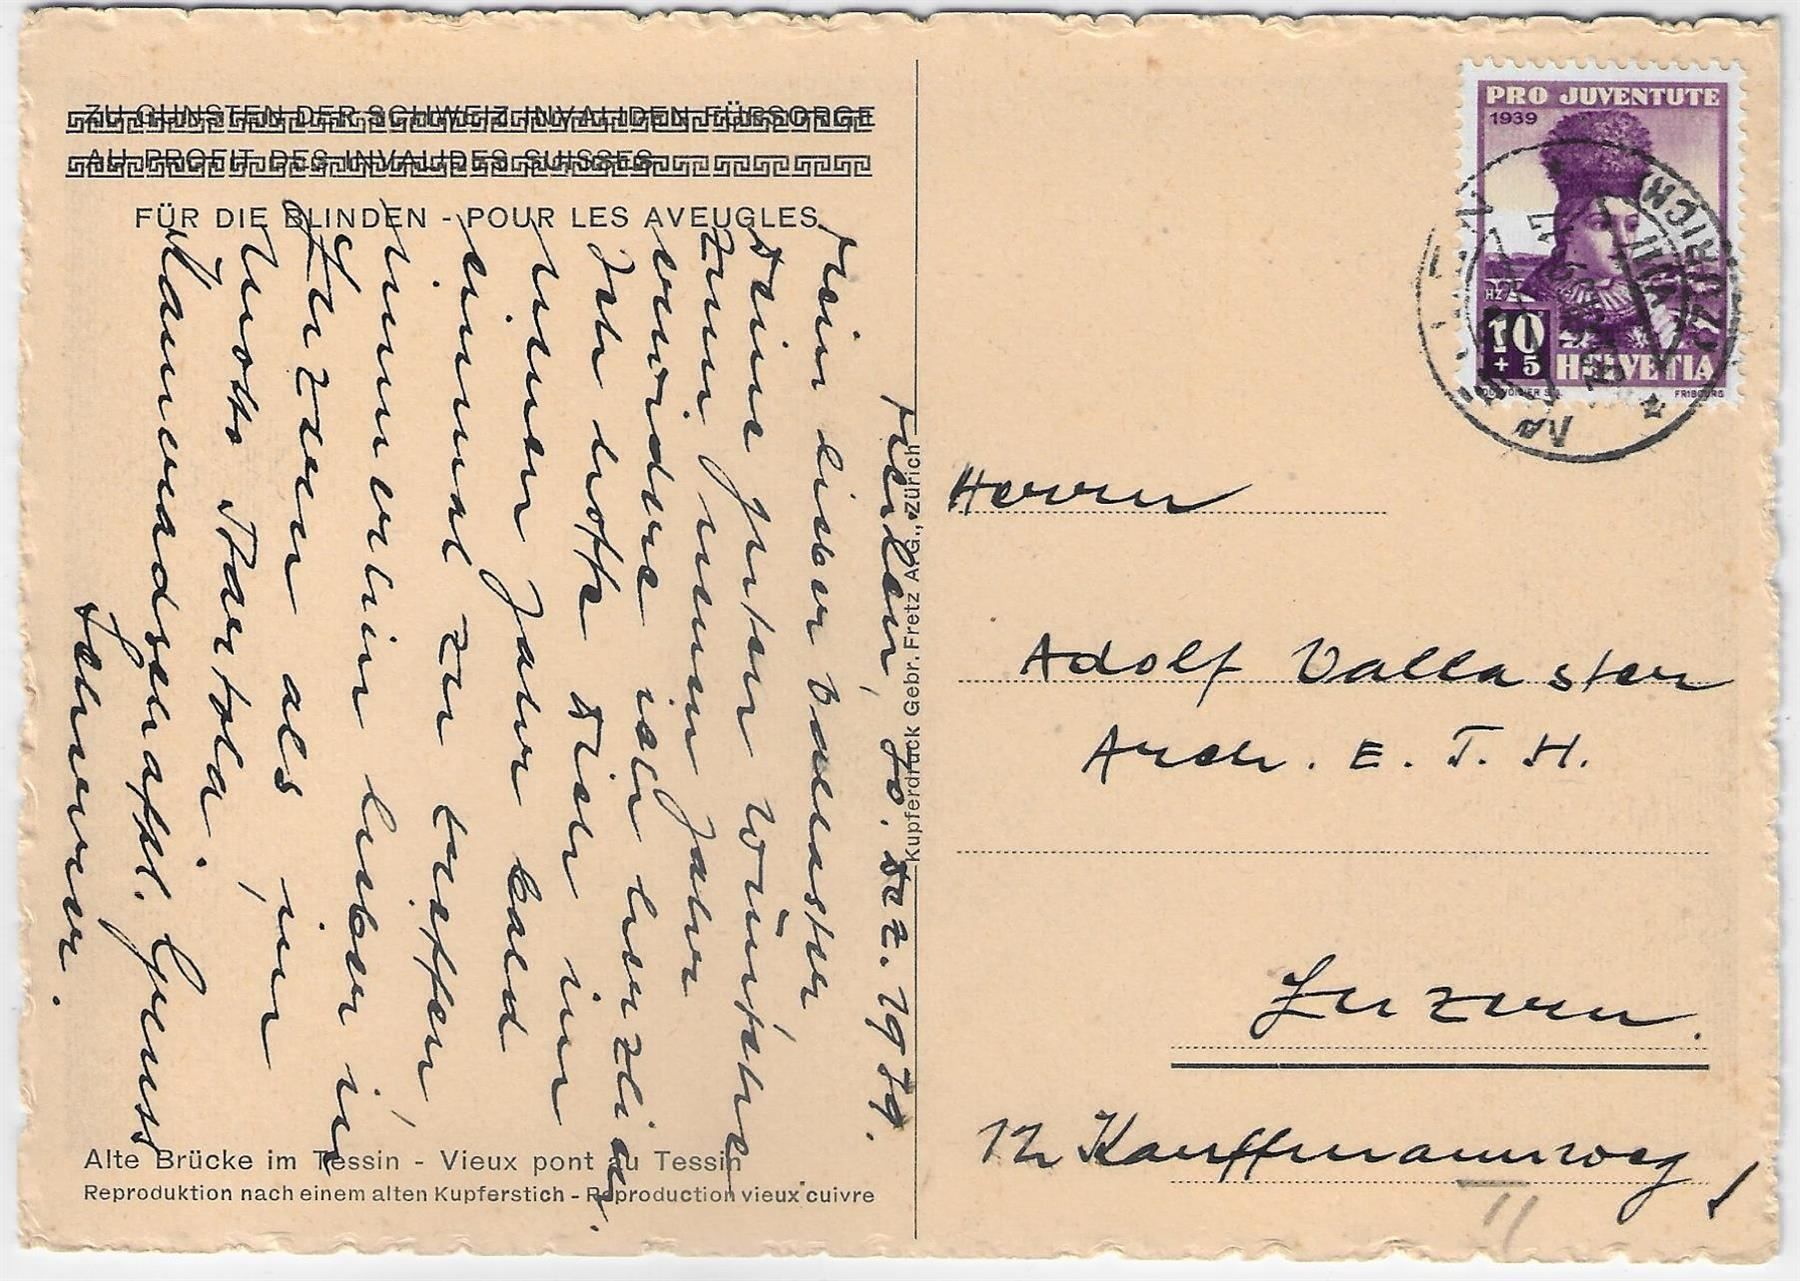 ZU GUNSTEN DER SCHWEIZ. INVALIDEN FÜRSORGE
AU PROFIT DES INVALIDES SUISSES
FÜR DIE BLINDEN - POUR LES AVEUGLES
30. Dez. 1939.
Mein lieber Vallaster
Deine guten Wünsche
zum neuen Jahr
erwidere ich herzlich.
Ich hoffe Dich im
neuen Jahr bald
einmal zu treffen,
immerhin lieber in
Luzern als im
Moto Bartola,
Kameradschaftl. Gruss
Kupferdruck Gebr. Fretz A.G., Zürich
Alte Brücke im Tessin - Vieux pont au Tessin
Reproduktion nach einem alten Kupferstich - Reproduction vieux cuivre
PRO JUVENTUTE
1939
10
+ 5
HELVETIA
FRIBOURG
ZÜRICH
Herrn
Adolf Vallaster
Arch. E. T. H.
Luzern.
12 Kauffmannweg
11